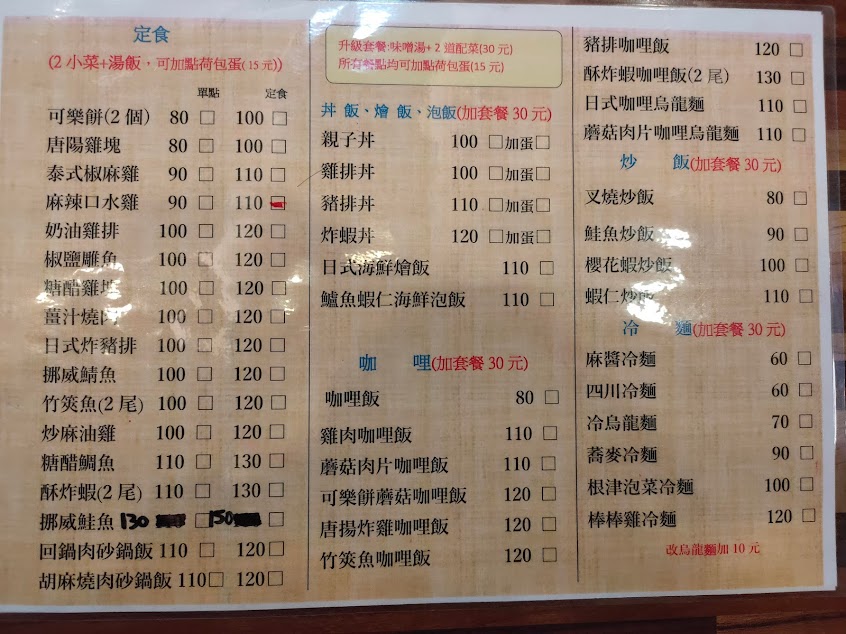 定食
(2 小菜+湯飯，可加點荷包蛋(15元))
單點 定食
可樂餅(2 個) 80 □ 100 □
唐陽雞塊 80 □ 100 □
泰式椒麻雞 90 □ 110 □
麻辣口水雞 90 □ 110 □
奶油雞排 100 □ 120 □
椒鹽雕魚 100 □ 120 □
糖醋雞塊 100 □ 120 □
薑汁燒肉 100 □ 120 □
日式炸豬排 100 □ 120 □
挪威鯖魚 100 □ 120 □
竹筴魚(2 尾) 100 □ 120 □
炒麻油雞 100 □ 120 □
糖醋鯛魚 110 □ 130 □
酥炸蝦(2 尾) 110 □ 130 □
挪威鮭魚 130 □ 150 □
回鍋肉砂鍋飯 110 □ 120 □
胡麻燒肉砂鍋飯 110 □ 120 □
升級套餐:味噌湯+ 2 道配菜(30 元)
所有餐點均可加點荷包蛋(15 元)
丼 飯、燴 飯、泡飯(加套餐 30 元)
親子丼 100 □加蛋□
雞排丼 100 □加蛋□
豬排丼 110 □加蛋□
炸蝦丼 120 □加蛋□
日式海鮮燴飯 110 □
鱸魚蝦仁海鮮泡飯 110 □
咖 哩(加套餐 30 元)
咖哩飯 80 □
雞肉咖哩飯 110 □
蘑菇肉片咖哩飯 110 □
可樂餅蘑菇咖哩飯 120 □
唐揚炸雞咖哩飯 120 □
竹筴魚咖哩飯 120 □
豬排咖哩飯 120 □
酥炸蝦咖哩飯(2 尾) 130 □
日式咖哩烏龍麵 110 □
蘑菇肉片咖哩烏龍麵 110 □
炒 飯(加套餐 30 元)
叉燒炒飯 80 □
鮭魚炒飯 90 □
櫻花蝦炒飯 100 □
蝦仁炒飯 110 □
冷 麵(加套餐 30 元)
麻醬冷麵 60 □
四川冷麵 60 □
冷烏龍麵 70 □
蕎麥冷麵 90 □
根津泡菜冷麵 100 □
棒棒雞冷麵 120 □
改烏龍麵加 10 元